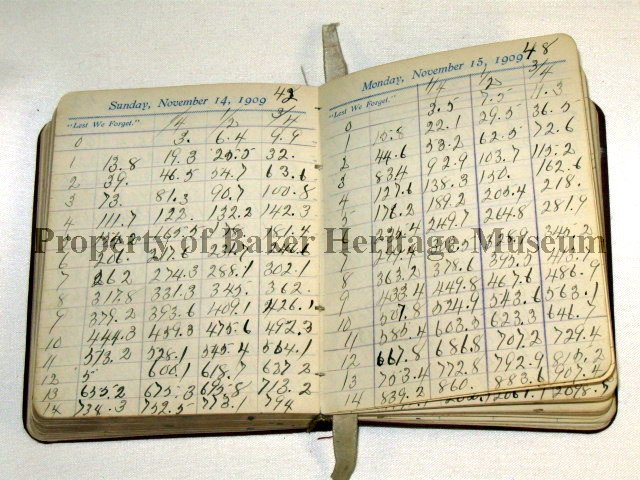 Sunday, November 14, 1909 42
"Lest We Forget." 1/4 1/2 3/4
0 3. 6.4 9.9
1 13.8 19.3 25.5 32.
2 39. 46.5 54.7 63.6
3 73. 81.3 90.7 100.8
4 111.7 122. 132.2 142.3
Property of Baker Heritage Museum
7 262 274.3 288.1 302.1
8 317.8 331.3 345. 362.
9 379.2 393.6 409.1 426.1
10 444.3 459.3 475.6 492.3
11 513.2 528.1 545.4 564.1
12 5 600.1 618.7 637.2
13 655.2 675.3 695.8 713.2
14 734.3 752.5 773.1 794
Monday, November 15, 1909 48
"Lest We Forget." 1/4 1/2 3/4
0 3.5 7.5 11.3
1 15.8 22.1 29.5 36.5
2 44.6 53.2 62.5 72.6
3 83.4 92.9 103.7 115.2
4 127.6 138.3 150. 162.6
5 176.2 189.2 203.4 218.
6 249.7 264.8 281.9
8 363.2 378.6 395.5
9 433.4 449.8 467.6 486.9
10 507.8 524.9 543.6 563.1
11 585.4 603.5 623.3 646.
12 667.8 686.8 707.2 729.4
13 753.4 772.8 792.9 815.2
14 839.2 860. 883.6 907.4